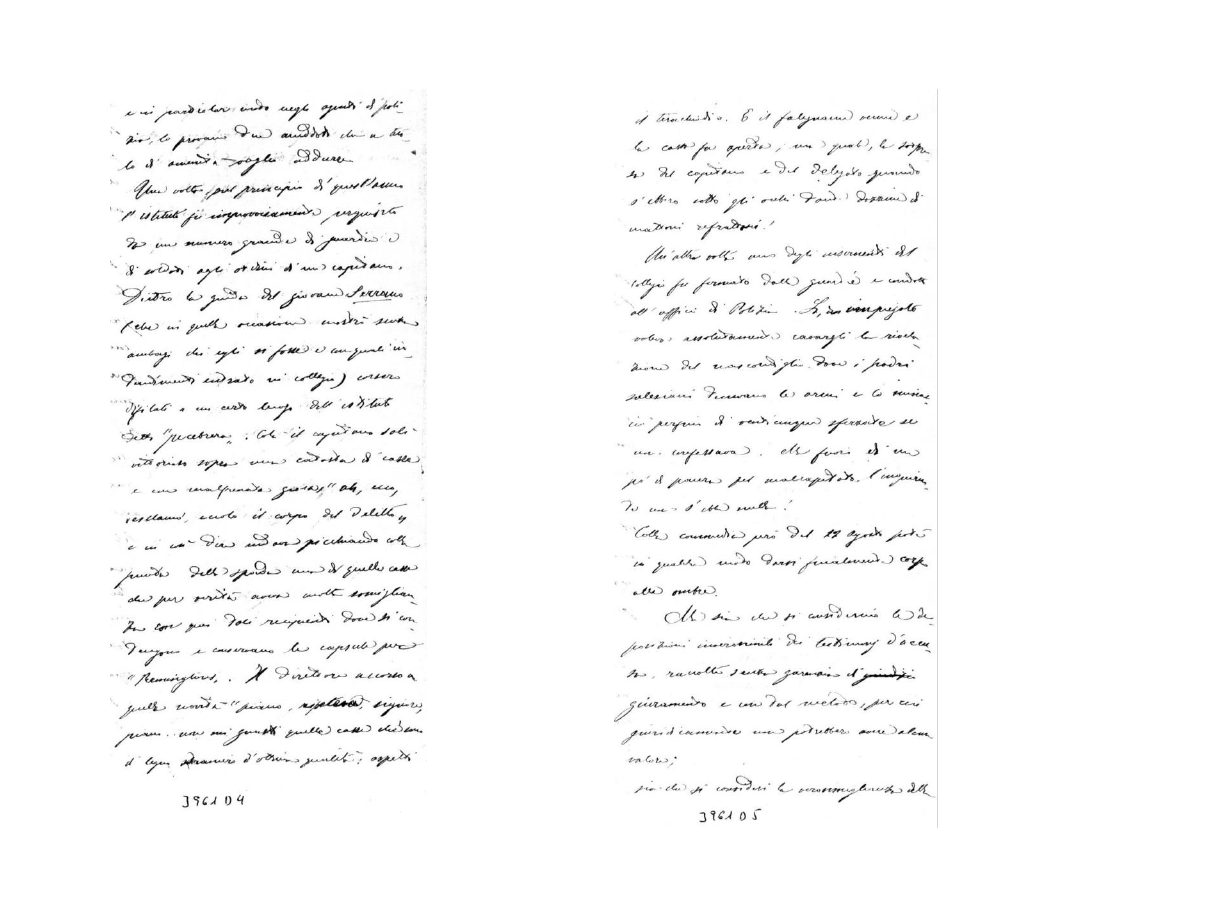 e in particolar modo negli agenti di poli-
zia, lo provano due aneddoti che a tito-
lo di amenità voglio addurre
Una volta, sul principio di quest'anno
l'istituto fu improvvisamente perquisito
da un numero grande di guardie e
di soldati agli ordini di un capitano.
Dietro la guida del giovane Serrano
(che in quella occasione mostrò senza
ambagi chi egli si fosse e con quali in-
tendimenti entrato in collegio) corsero
difilati a un certo luogo dell'istituto
detto "pesebrera". Colà il capitano salì
vittorioso sopra una catasta di casse
e con malfrenata gioia, "ah, ecco,
esclamò, eccolo il corpo del delitto"
e in ciò dire andava picchiando colla
punta della spada una di quelle casse
che per verità aveva molta somiglian-
za con quei dati recipienti dove si con-
tengono e conservano le capsule per
"Remingtons". Il direttore accorso a
quella novità "piano, signore,
piano. non mi guasti quelle casse che sono
di legno straniero d'ottima qualità; aspetti
396104
il tirachiodi". E il falegname venne e
la cassa fu aperta; ma quale la sorpre-
sa del capitano e del delegato quando
s'ebbero sotto gli occhi dozzine di
mattoni refrattari!
Un'altra volta uno degli inservienti del
collegio fu fermato dalle guardie e condotto
all'ufficio di Polizia. Là, un impiegato
voleva assolutamente cavargli la rivela-
zione del nascondiglio dove i padri
salesiani tenevano le armi e lo minac-
ciò perfino di venticinque sferzate se
non confessava. Ma fuori di un
po' di paura pel malcapitato, l'inquiren-
te non s'ebbe nulla!
Colla commedia però del 22 Agosto poté
in qualche modo darsi finalmente corpo
alle ombre.
Ma sia che si considerino le de-
posizioni inverosimili dei testimoni d'accu-
sa, raccolte senza garanzia di
giuramento e con tal metodo, per cui
giuridicamente non potrebbero avere alcun
valore;
sia che si consideri la verosimiglianza delle
396105